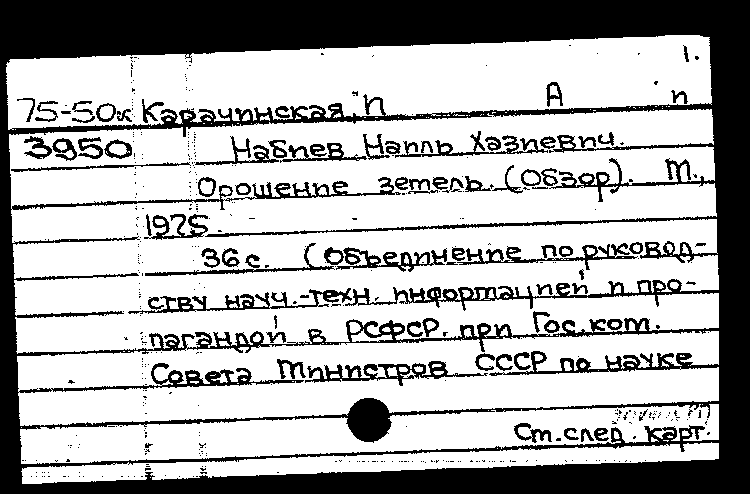 1.
75-50к Карачинская, И А п
3950 Набиев Наиль Хазиевич.
Орошение земель. (Обзор). М.,
1975.
36 с. (Объединение по руковод-
ству науч.-техн. информацией и про-
пагандой в РСФСР. при Гос. ком.
Совета Министров СССР по науке
Ст. след. карт.